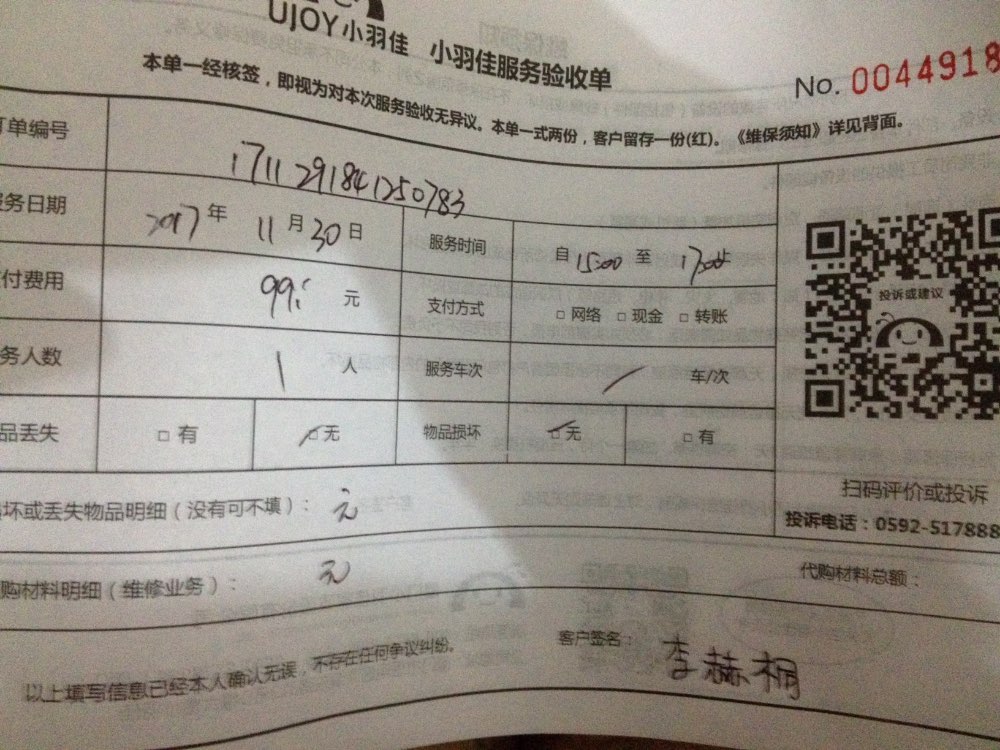 UJOY小羽佳 小羽佳服务验收单
No. 0044918
本单一经核签，即视为对本次服务验收无异议。本单一式两份，客户留存一份(红)。《维保须知》详见背面。
订单编号 1711291841250783
服务日期 2017年 11月30日 服务时间 自15:00 至 17:00
付费用 99. 元 支付方式 □网络 □现金 □转账
务人数 1 人 服务车次 / 车/次
品丢失 □有 □无 物品损坏 □无 □有
投诉或建议
扫码评价或投诉
投诉电话：0592-517888
坏或丢失物品明细（没有可不填）： 无
购材料明细（维修业务）： 无 代购材料总额：
以上填写信息已经本人确认无误，不存在任何争议纠纷。 客户签名： 李赫桐